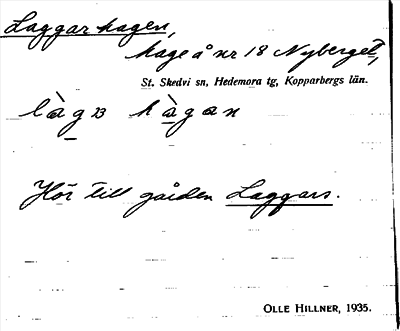 Laggarhagen,
hage å nr 18 Nyberget,
St. Skedvi sn, Hedemora tg, Kopparbergs län.
hàgan
Hör till gården Laggars.
OLLE HILLNER, 1935.